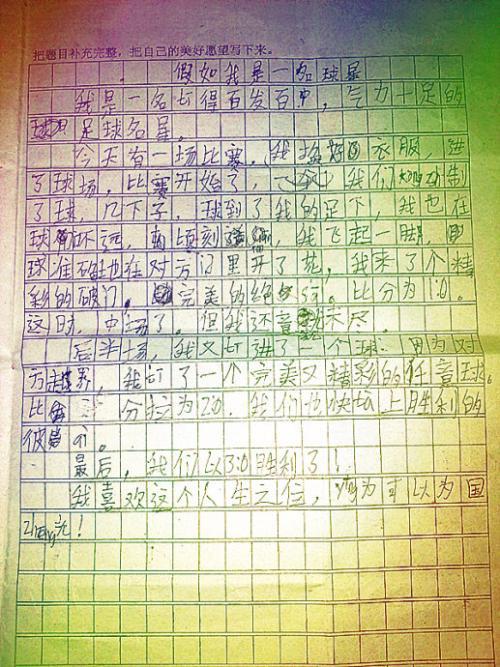 把题目补充完整，把自己的美好愿望写下来。
假如我是一名球星
我是一名打得百发百中，气力十足的
足球名星。
今天有一场比赛，我换好衣服，进
了球场，比赛开始了，我们控制
了球，几下子，球到了我的足下，我也在
球不远，顷刻，我飞起一脚，
球准确地在对方门里开了花，我来了个精
彩的破门。完美的绝。比分为1:0。
这时，中场了。但我还意未尽。
后半场，我又打进了一个球：因为对
方越界，我订了一个完美又精彩的任意球。
比分拉为2:0，我们也快场上胜利的
彼岸了。
最后，我们以3:0胜利了！
我喜欢这个人生之位，因为可以为国
zheng光！